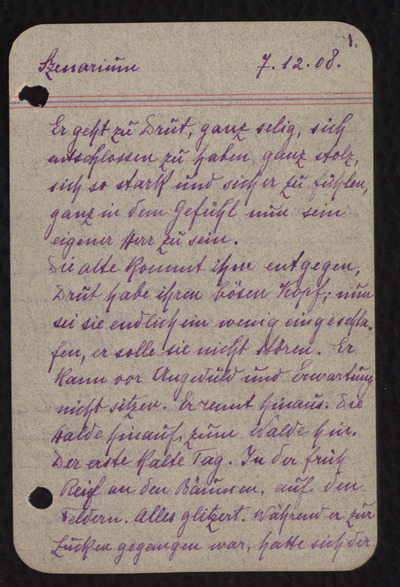 1.
Szenarium 7.12.08.
Er geht zu Drut, ganz selig, sich
entschlossen zu haben, ganz stolz,
sich so stark und sicher zu fühlen,
ganz in dem Gefühl nun sein
eigener Herr zu sein.
Die alte kommt ihm entgegen,
Drut habe ihren bösen Kopf, nun
sei sie endlich ein wenig eingeschla-
fen, er solle sie nicht stören. Er
kann vor Ungeduld und Erwartung
nicht sitzen. Er rennt hinaus. Die
Halde hinauf, zum Walde hin.
Der erste kalte Tag. In der früh
Reif an den Bäumen, auf den
Feldern. Alles glitzert. Während er zur
gegangen war, hatte sich der